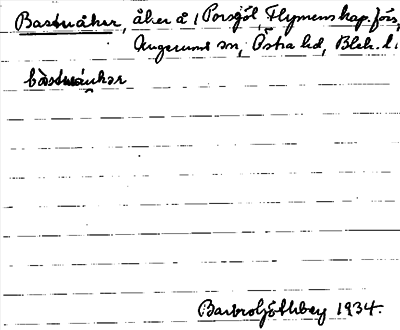 Bastuåker, åker å, Porsgöl, Flymens kap.förs,
Augerums sn, Östra hd, Blek. l.
Barbro Göthberg 1934.